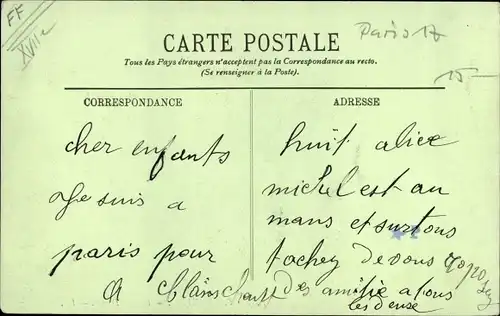 FF
XVIIe
Paris 17
15-
CARTE POSTALE
Tous les Pays étrangers n'acceptent pas la Correspondance au recto.
(Se renseigner à la Poste).
CORRESPONDANCE
cher enfants
Je suis a
paris pour
ADRESSE
huit alice
michel est au
mans et surtous
tachez de vous
des amitie a tous
les deuse